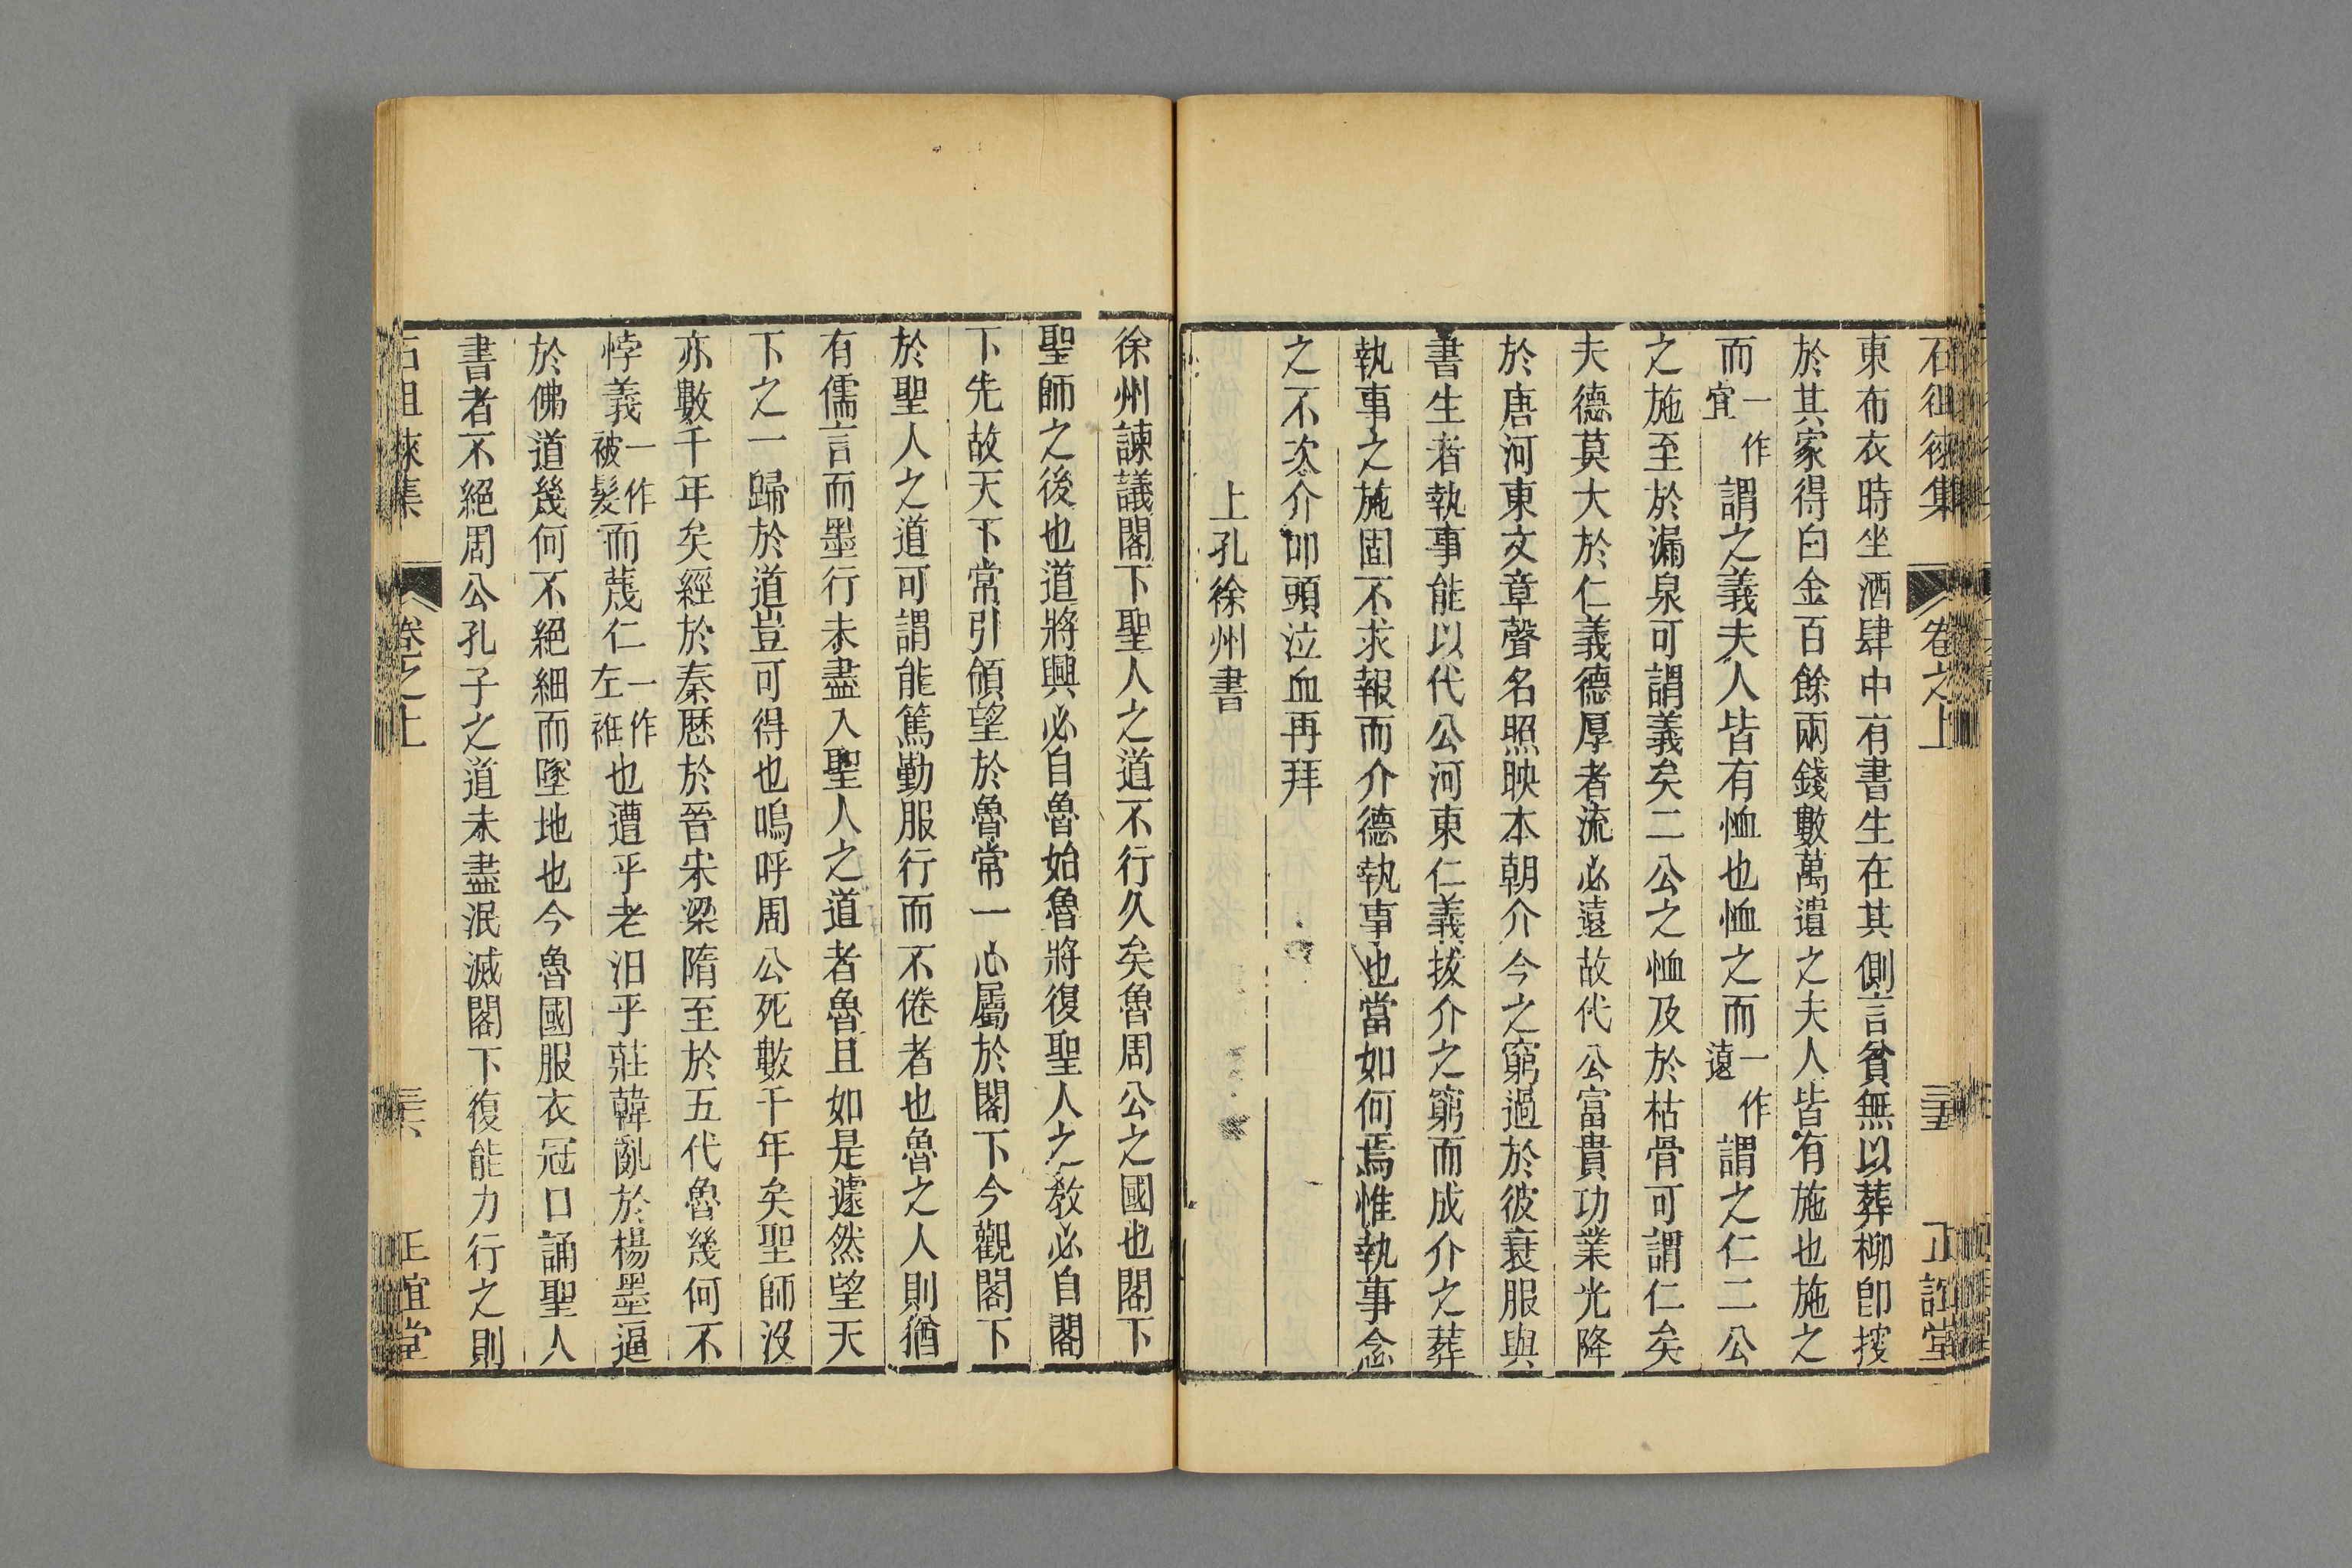 石徂徠集 卷之上 三五 正誼堂
東布衣時坐酒肆中有書生在其側言貧無以葬柳卽搜
於其家得白金百餘兩錢數萬遺之夫人皆有施也施之
而一作宜謂之義夫人皆有恤也恤之而一作遠謂之仁二公
之施至於漏泉可謂義矣二公之恤及於枯骨可謂仁矣
夫德莫大於仁義德厚者流必遠故代公富貴功業光降
於唐河東文章聲名照映本朝介今之窮過於彼衰服與
書生者執事能以代公河東仁義拔介之窮而成介之葬
執事之施固不求報而介德執事也當如何焉惟執事念
之不次介叩頭泣血再拜
上孔徐州書
徐州諫議閣下聖人之道不行久矣魯周公之國也閣下
聖師之後也道將興必自魯始魯將復聖人之教必自閣
下先故天下常引領望於魯常一心屬於閣下今觀閣下
於聖人之道可謂能篤勤服行而不倦者也魯之人則猶
有儒言而墨行未盡入聖人之道者魯且如是遽然望天
下之一歸於道豈可得也嗚呼周公死數千年矣聖師沒
亦數千年矣經於秦歷於晉宋梁隋至於五代魯幾何不
悖義一作被髮而蔑仁一作左袵也遭乎老汨乎莊韓亂於楊墨逼
於佛道幾何不絕細而墜地也今魯國服衣冠口誦聖人
書者不絕周公孔子之道未盡泯滅閣下復能力行之則
石徂徠集 卷之上 正誼堂